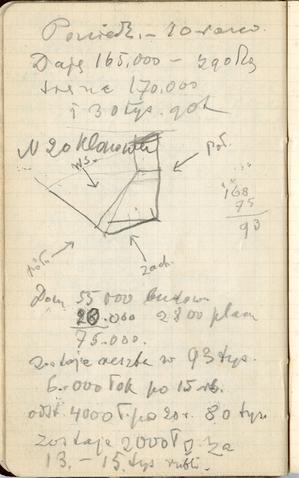 Poniedz. – 10 rano.
Daję 165.000 – zgodzą
się na 170.000
i 30 tys. got
N 20 Klonowa
ws.
poł.
półn.
zach.
168
75
93
Dom 55 000 budowa
20.000 2800 plac
75.000.
zostaje reszta w 93 tys.
6.000 łok po 15 rb.
odst. 4000 ł. po 20 r. 80 tys.
zostaje 2000 ł □ za
13. – 15 tys rubli.